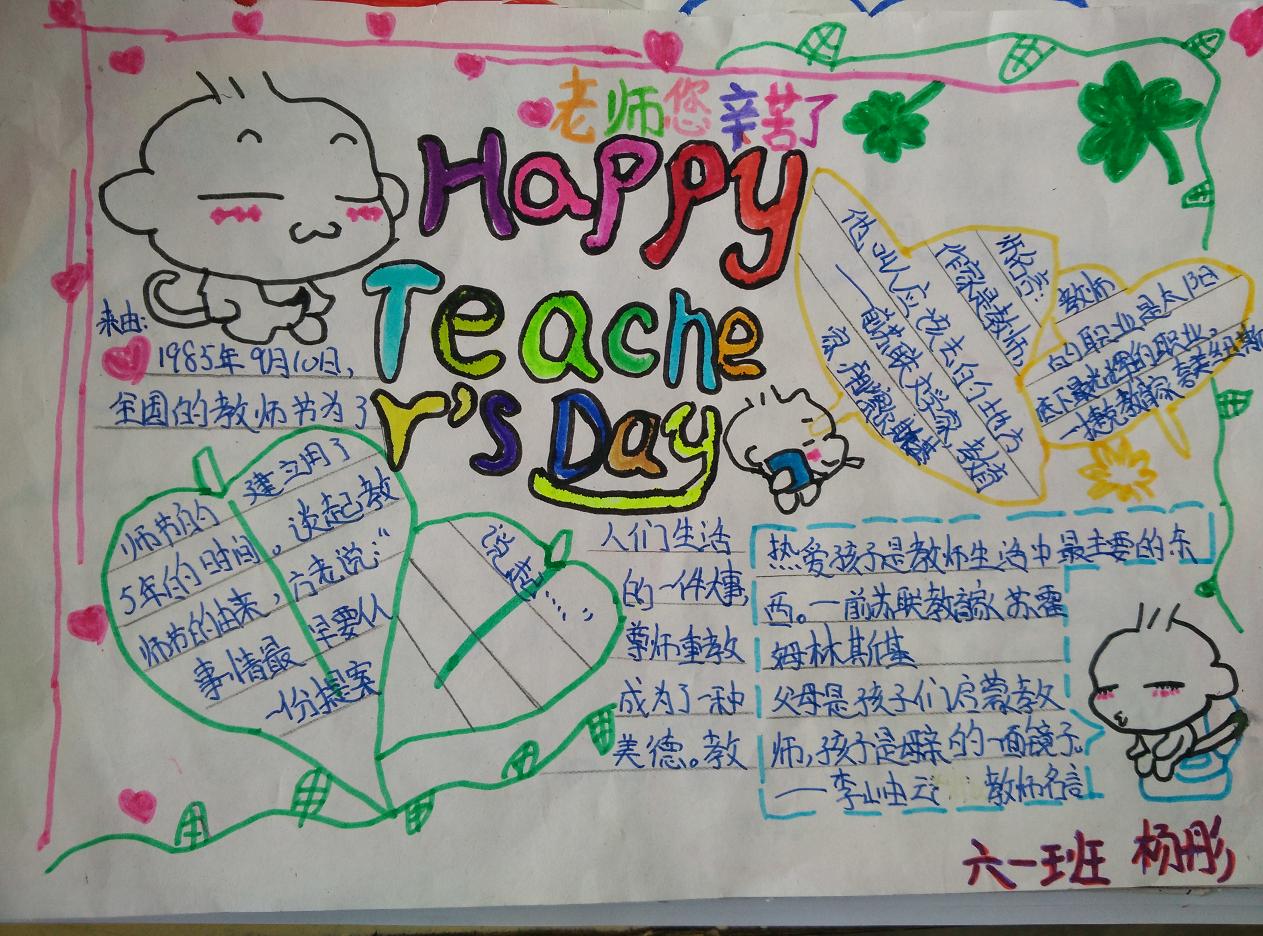 老师您辛苦了
Happy
Teache
r's Day
来由:
1985年9月10日,
全国的教师节为了
师节的建立用了
5年的时间。谈起教
师节的由来,方老说:"
事情最早要从
一份提案
说起……"
人们生活
的一件大事,
尊师重教
成为了一种
美德。教
乐名言:
作家是教师,
他叫人应该去的地方
——前苏联文学家、教育
教师
的职业是太阳
底下最光辉的职业。
热爱孩子是教师生活中最主要的东
西。——前苏联教育家 苏霍
姆林斯基
父母是孩子们启蒙教
师,孩子是母亲的一面镜子。
——李山由云
教师名言
六一班 杨彤